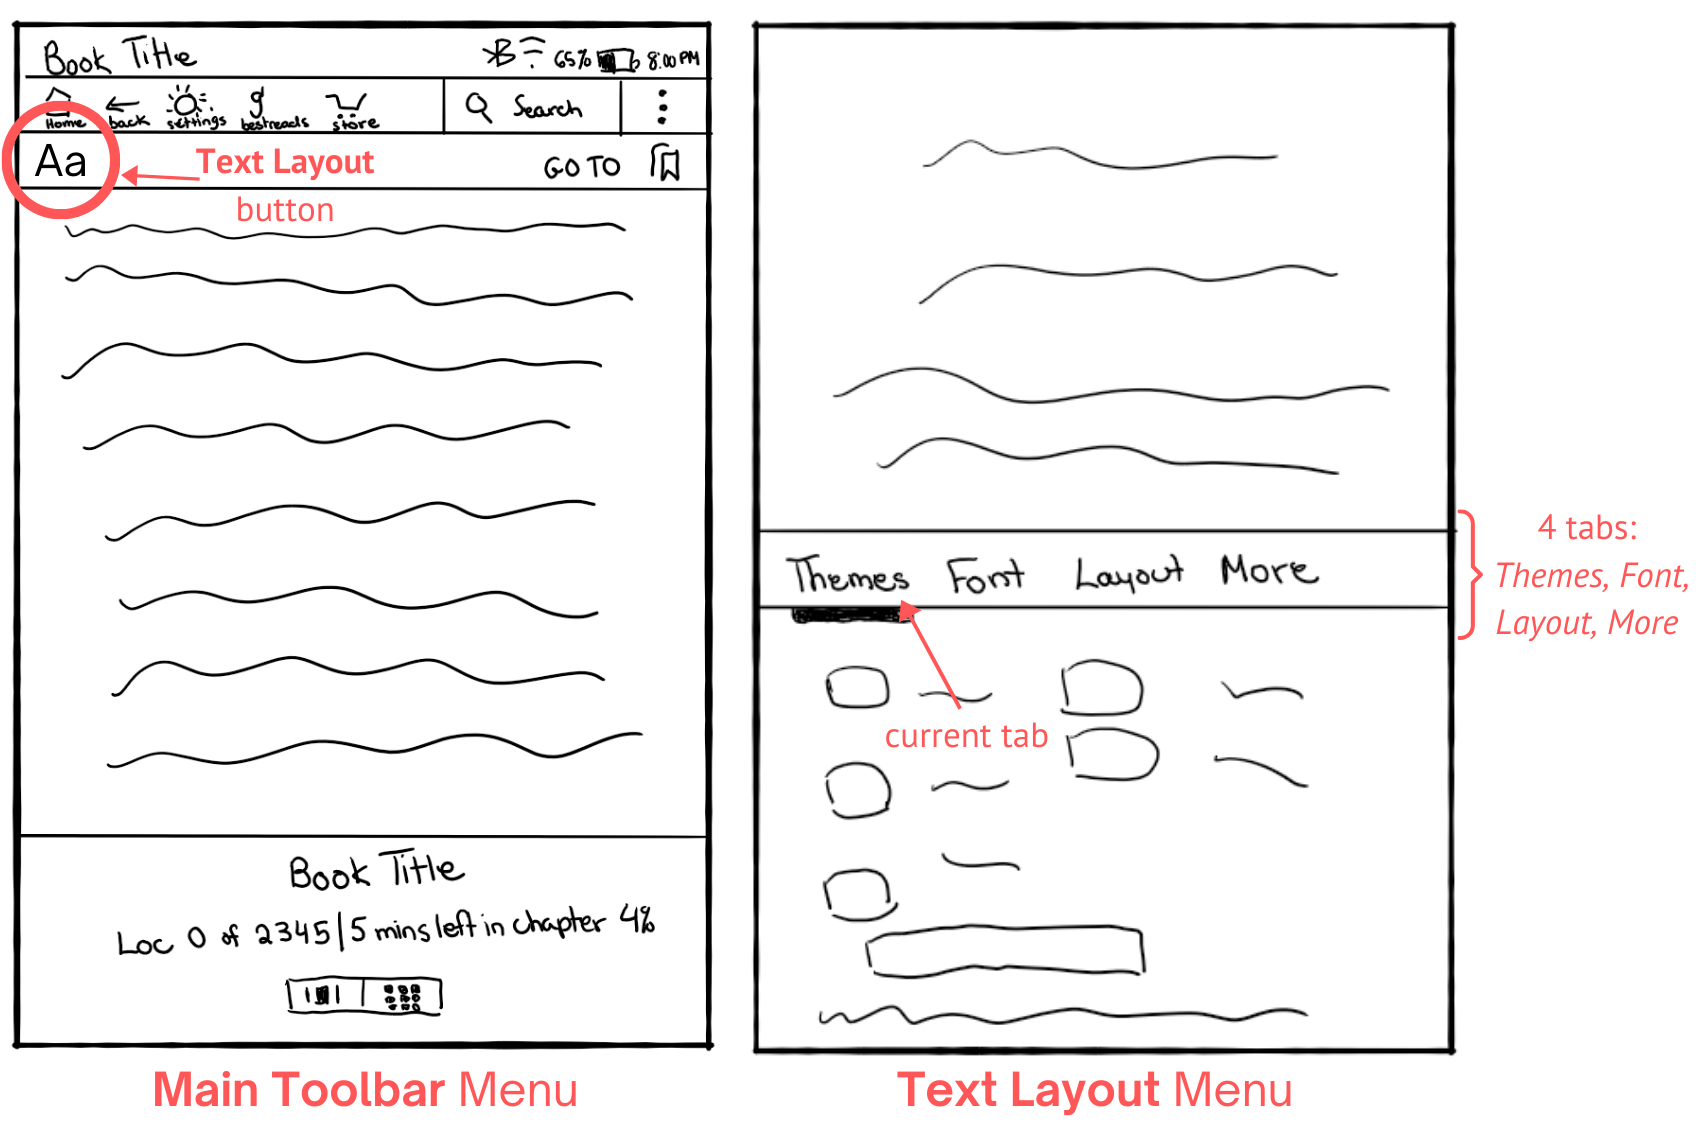 Book Title
65% 8:00 PM
Home back settings bestreads store
Search
Aa
Text Layout
button
GO TO
Book Title
Loc 0 of 2345/5 mins left in chapter 4%
Main Toolbar Menu
Themes Font Layout More
current tab
4 tabs:
Themes, Font,
Layout, More
Text Layout Menu